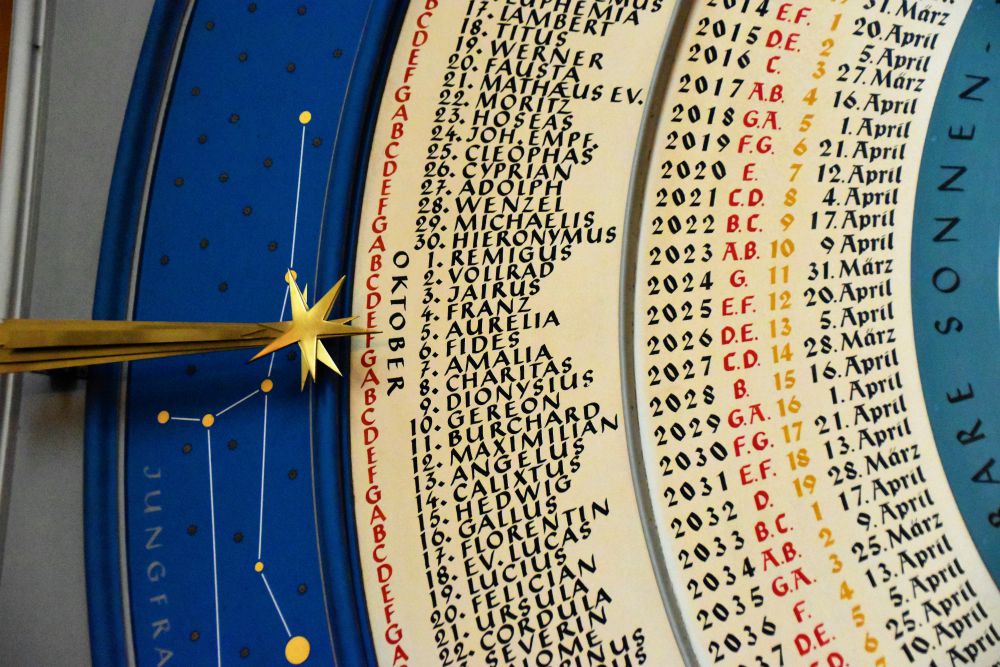 JUNGFRA
BCDEFGABCDEFGABCDEFGABCDEFGABCDEFGA
EUPHEMIA
17. LAMBERT
18. TITUS
19. WERNER
20. FAUSTA
21. MATHÆUS EV.
22. MORITZ
23. HOSEAS
24. JOH. EMPF.
25. CLEOPHAS
26. CYPRIAN
27. ADOLPH
28. WENZEL
29. MICHAELIS
30. HIERONYMUS
OKTOBER
1. REMIGUS
2. VOLLRAD
3. JAIRUS
4. FRANZ
5. AURELIA
6. FIDES
7. AMALIA
8. CHARITAS
9. DIONYSIUS
10. GEREON
11. BURCHARD
12. MAXIMILIAN
13. ANGELUS
14. CALIXTUS
15. HEDWIG
16. GALLUS
17. FLORENTIN
18. EV. LUCAS
19. LUCIUS
20. FELICIAN
21. URSULA
22. CORDULA
SEVERIN
31. März
2014 E.F. 1 20. April
2015 D.E. 2 5. April
2016 C. 3 27. März
2017 A.B. 4 16. April
2018 G.A. 5 1. April
2019 F.G. 6 21. April
2020 E. 7 12. April
2021 C.D. 8 4. April
2022 B.C. 9 17. April
2023 A.B. 10 9. April
2024 G. 11 31. März
2025 E.F. 12 20. April
2026 D.E. 13 5. April
2027 C.D. 14 28. März
2028 B. 15 16. April
2029 G.A. 16 1. April
2030 F.G. 17 21. April
2031 E.F. 18 13. April
2032 D. 19 28. März
2033 B.C. 1 17. April
2034 A.B. 2 9. April
2035 G.A. 3 25. März
2036 F. 4 13. April
2037 D.E. 5 5. April
6 25. April
10. April
BARE SONNEN-